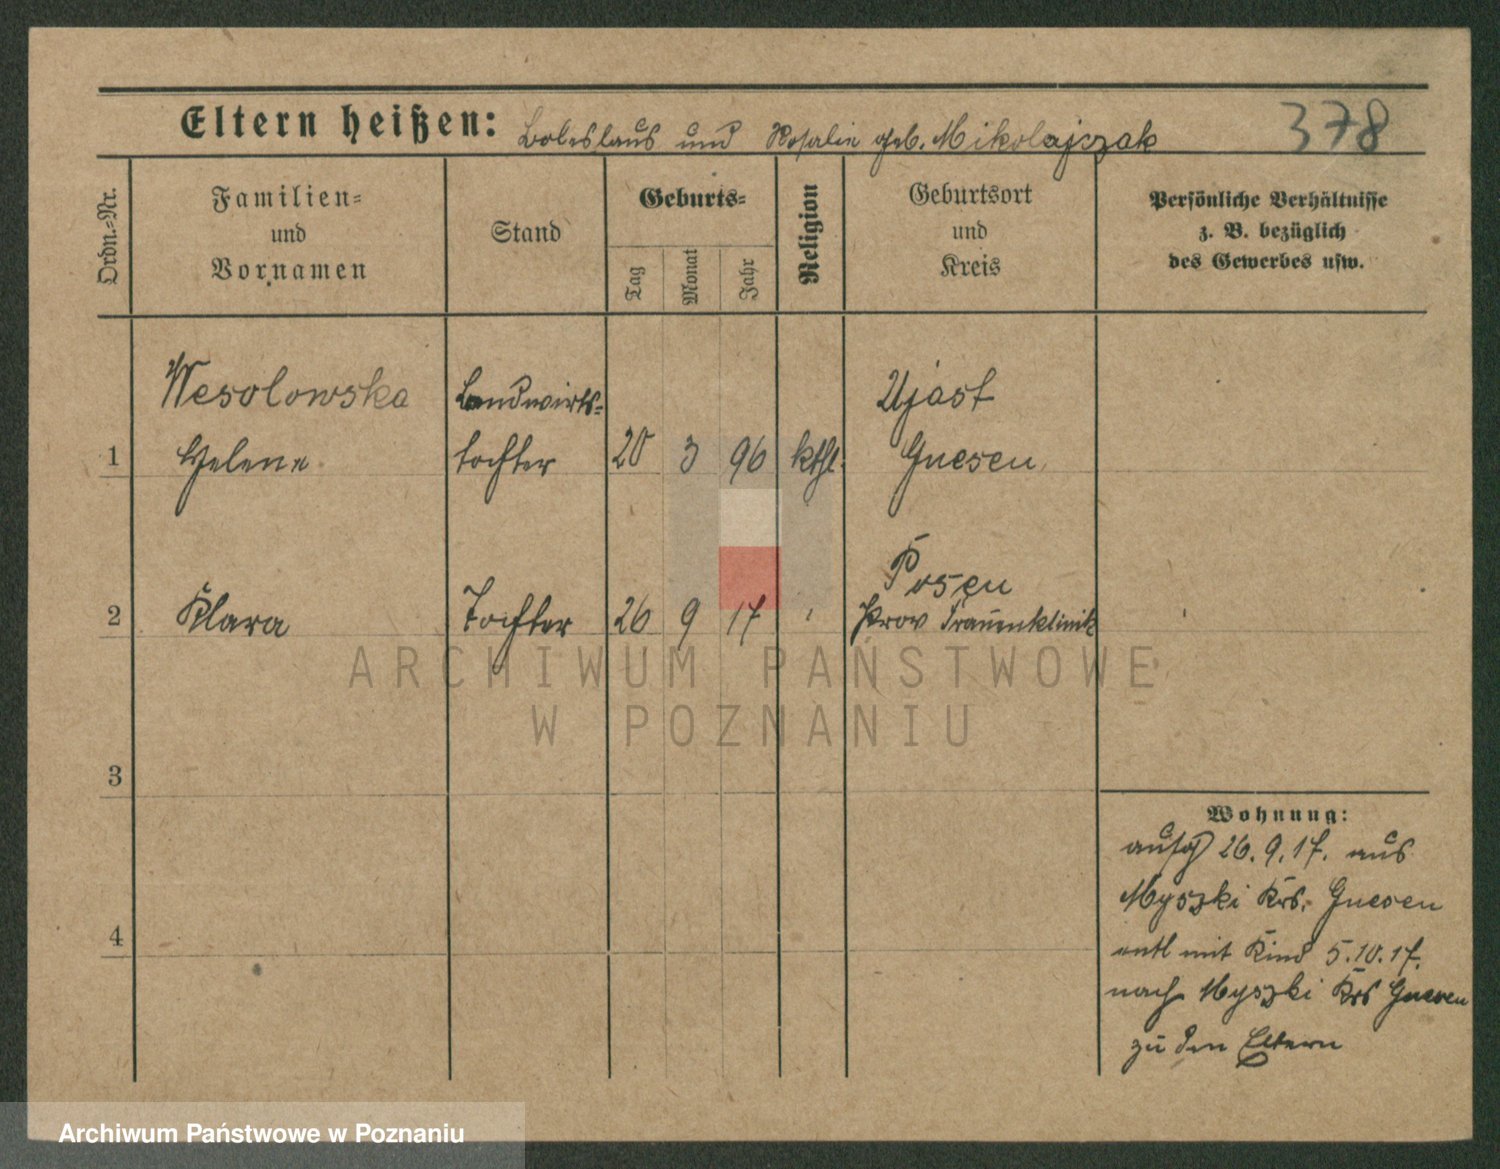 Eltern heißen: Boleslaus und Rosalie geb. Mikolajczak 378
Ordn.-Nr.
Familien- und Vornamen
Stand
Geburts-
Tag
Monat
Jahr
Religion
Geburtsort und Kreis
Persönliche Verhältnisse
z. B. bezüglich
des Gewerbes usw.
Wesolowska Landwirts- Ujast
1 Helene tochter 20 3 96 kthl. Gnesen
Posen
2 Klara Tochter 26 9 17 " Prov Frauenklinik
ARCHIWUM PAŃSTWOWE
W POZNANIU
3
4
Wohnung:
aufg 26.9.17. aus
Myszki Krs. Gnesen
entl mit Kind 5.10.17.
nach Myszki Krs Gnesen
zu den Eltern
Archiwum Państwowe w Poznaniu